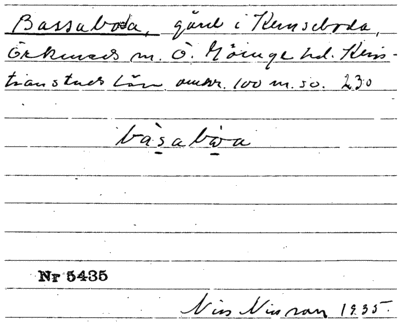 Bassaboda, gård i Kunseboda,
Örkeneds sn. Ö. Göinge hd. Kris-
tianstads län omkr. 100 m. so. 230
bàsabωa
Nr 5435
Nils Nilsson 1935.